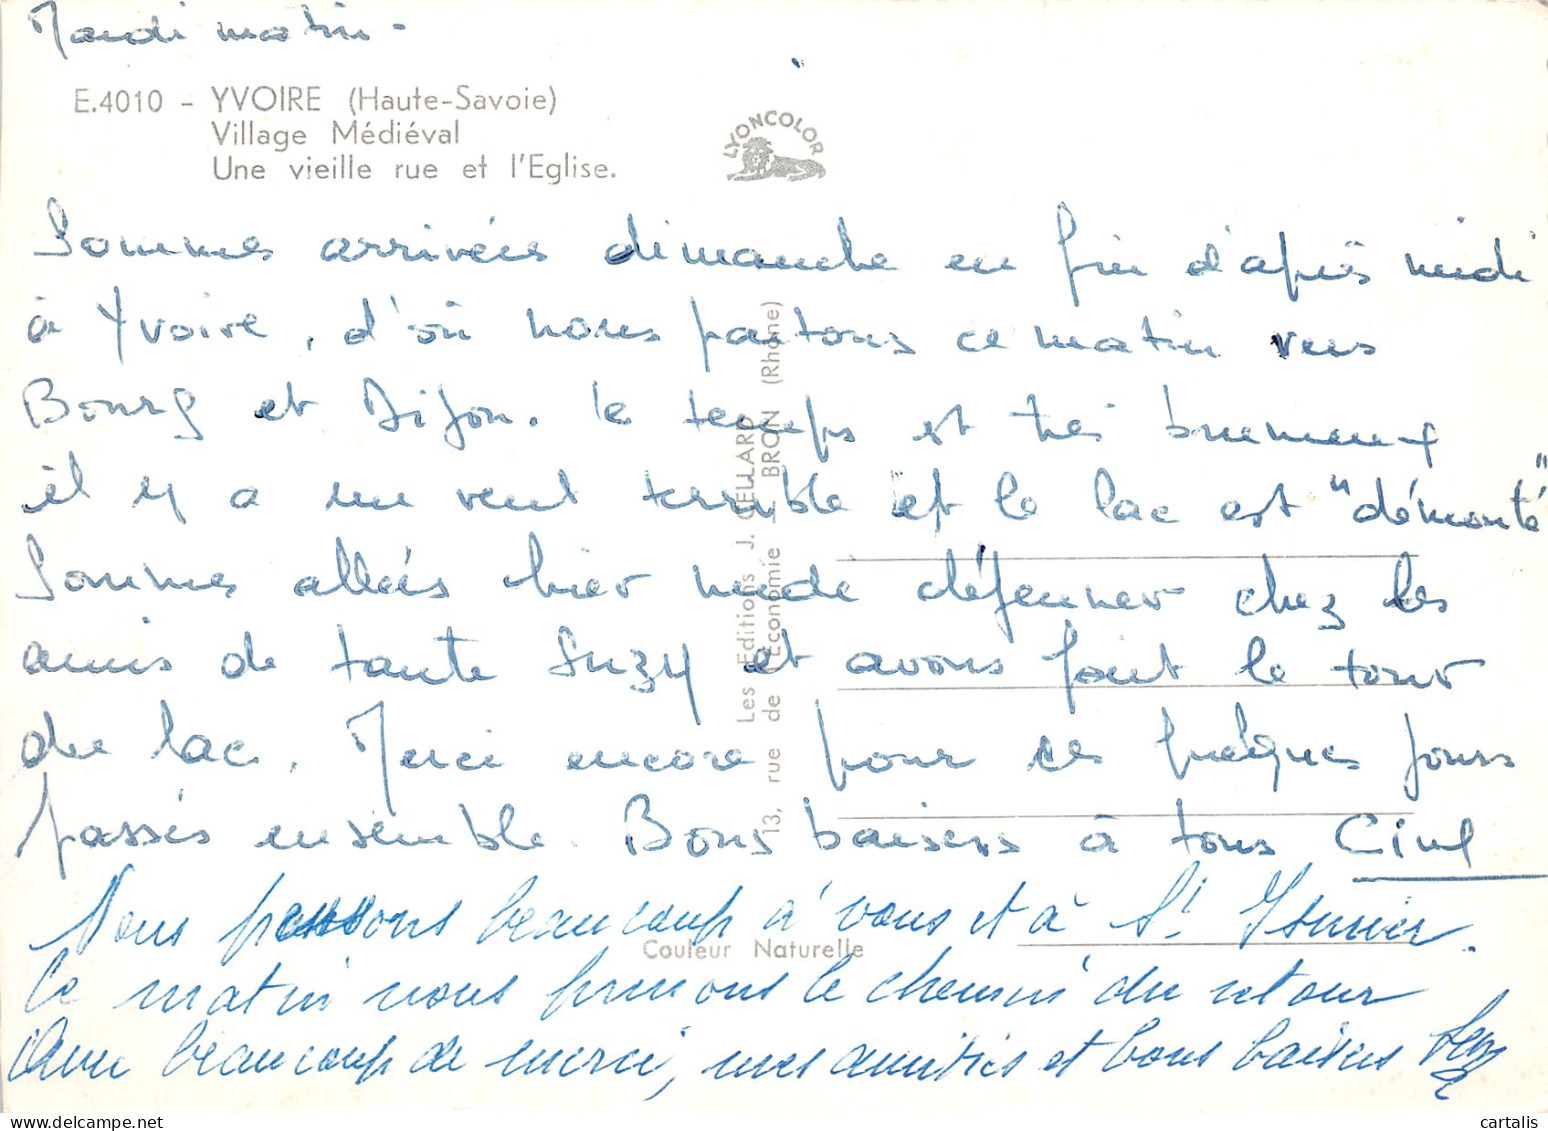 Mardi matin -
E.4010 - YVOIRE (Haute-Savoie)
Village Médiéval
Une vieille rue et l'Eglise.
LYONCOLOR
Sommes arrivées dimanche en fin d'après midi
à Yvoire, d'où nous partons ce matin vers
Bourg et Dijon. le temps est très brumeux
il y a un vent terrible et le lac est "démonté"
Sommes allées hier midi déjeuner chez les
amis de tante Suzy et avons fait le tour
du lac. Merci encore pour ces quelques jours
passés ensemble. Bons baisers à tous
Les Editions J. CELLARD
13, rue de l'Economie - BRON (Rhône)
Nous pensons beaucoup à vous et à St Ismier.
Couleur Naturelle
Ce matin nous prenons le chemin du retour
Avec beaucoup de merci, mes amitiés et bons baisers
cartalis